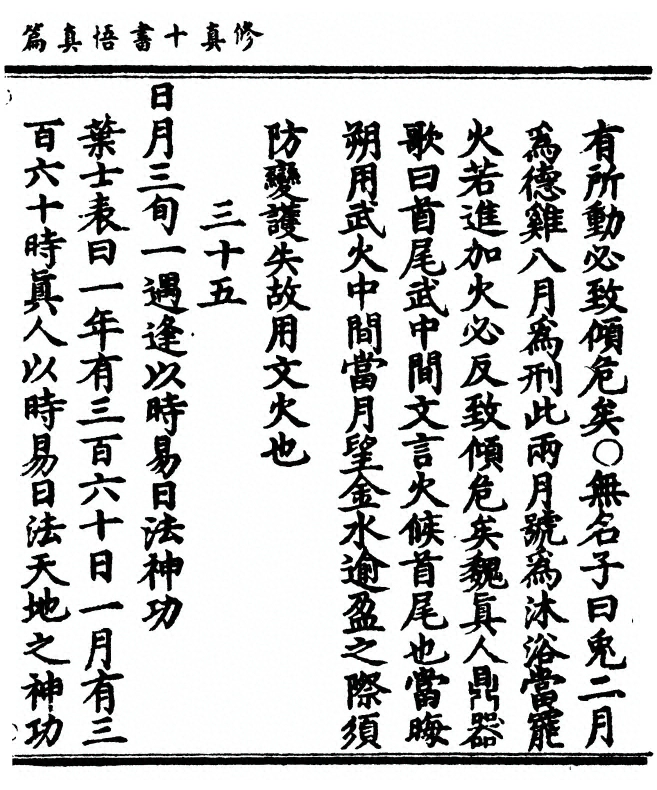 修真十書悟真篇
有所動必致傾危矣○無名子曰兎二月
爲德雞八月爲刑此兩月號爲沐浴當罷
火若進加火必反致傾危矣魏眞人鼎器
歌曰首尾武中間文言火候首尾也當晦
朔用武火中間當月望金水逾盈之際須
防變護失故用文火也
三十五
日月三旬一遇逢以時易日法神功
葉士表曰一年有三百六十日一月有三
百六十時眞人以時易日法天地之神功